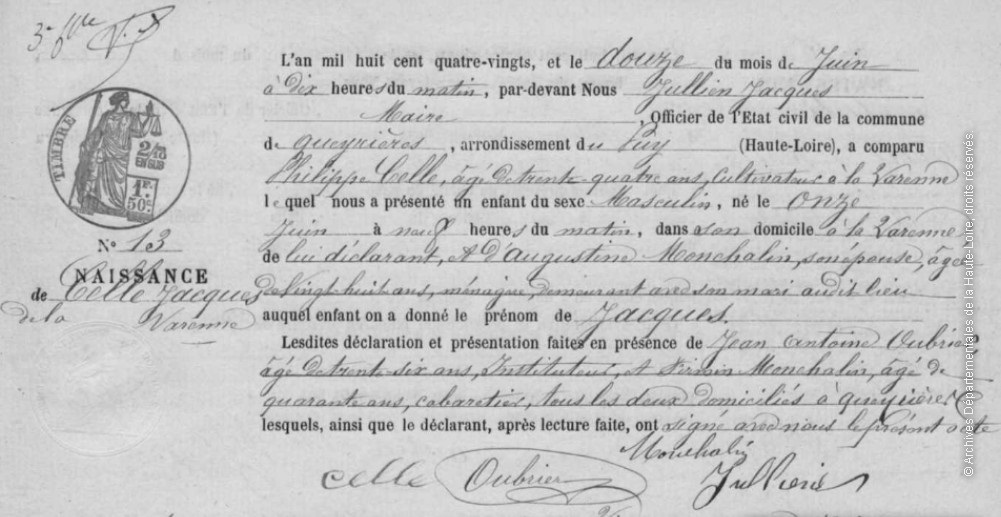 L'an mil huit cent quatre-vingts, et le douze du mois de Juin
à dix heures du matin, par-devant Nous Jullien Jacques
Maire, Officier de l'Etat civil de la commune
de queyrières, arrondissement du Puy (Haute-Loire), a comparu
Philippe Celle, âgé de trente-quatre ans, cultivateur à la Varenne
lequel nous a présenté un enfant du sexe Masculin, né le onze
Juin à neuf heures du matin, dans son domicile à la Varenne
de lui déclarant, et d'Augustine Monchalin, son épouse, âgée
de vingt huit ans, ménagère, demeurant avec son mari audit lieu
auquel enfant on a donné le prénom de Jacques.
Lesdites déclaration et présentation faites en présence de Jean Antoine Oubrier
âgé de trente-six ans, Instituteur, et Firmin Monchalin, âgé de
quarante ans, cabaretier, tous les deux domiciliés à queyrières
lesquels, ainsi que le déclarant, après lecture faite, ont signé avec nous le présent acte
Monchalin
Celle Oubrier Jullien
TIMBRE
2/10
EN SUS
1 F.
50 c.
N° 13
NAISSANCE
de Celle Jacques
de la Varenne
© Archives Départementales de la Haute-Loire, droits réservés.